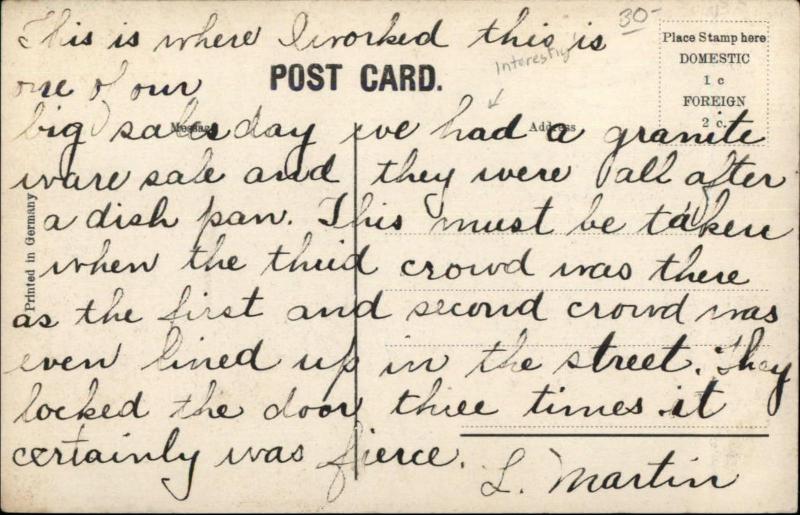 30-
This is where I worked this is
Interesting
Place Stamp here
DOMESTIC
1 c
FOREIGN
2 c.
one of our
POST CARD.
Message
Address
big sales day we had a granite
ware sale and they were all after
a dish pan. This must be taken
when the third crowd was there
as the first and second crowd was
even lined up in the street. They
locked the door three times it
certainly was fierce.
L. Martin
Printed in Germany